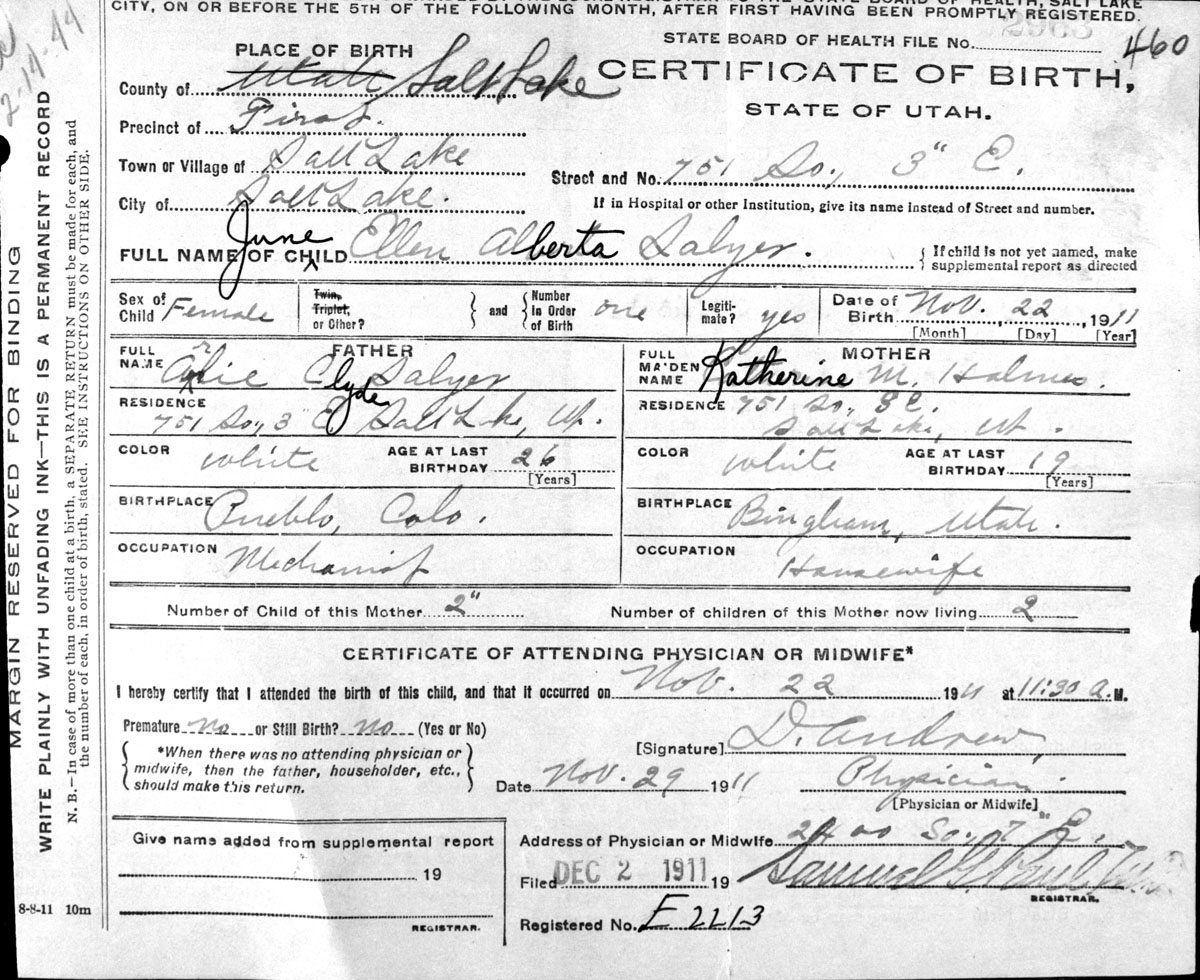 CITY, ON OR BEFORE THE 5TH OF THE FOLLOWING MONTH, AFTER FIRST HAVING BEEN PROMPTLY REGISTERED.
2-14-44
STATE BOARD OF HEALTH FILE No. 460
PLACE OF BIRTH
CERTIFICATE OF BIRTH,
STATE OF UTAH.
County of Utah Salt Lake
Precinct of First
Town or Village of Salt Lake
Street and No. 751 So, 3" E.
City of Salt Lake.
If in Hospital or other Institution, give its name instead of Street and number.
June
FULL NAME OF CHILD Ellen Alberta Salyer.
If child is not yet named, make supplemental report as directed
Sex of Child Female
Twin, Triplet, or Other?
and
Number In Order of Birth one
Legitimate? yes
Date of Birth Nov. 22, 1911
[Month] [Day] [Year]
FATHER
FULL NAME Arlie Clyde Salyer
RESIDENCE 751 So, 3 E, Salt Lake, Ut.
COLOR white
AGE AT LAST BIRTHDAY 26
[Years]
BIRTHPLACE Pueblo, Colo.
OCCUPATION Mechanist
MOTHER
FULL MAIDEN NAME Katherine M. Holmes.
RESIDENCE 751 So, 3 E.
Salt Lake, Ut.
COLOR white
AGE AT LAST BIRTHDAY 19
[Years]
BIRTHPLACE Bingham, Utah.
OCCUPATION Housewife
Number of Child of this Mother 2"
Number of children of this Mother now living 2
CERTIFICATE OF ATTENDING PHYSICIAN OR MIDWIFE*
I hereby certify that I attended the birth of this child, and that it occurred on Nov. 22 1911 at 11:30 a.M.
Premature no or Still Birth? no (Yes or No)
*When there was no attending physician or
midwife, then the father, householder, etc.,
should make this return.
[Signature] D. Andrew,
Date Nov. 29 1911
Physician.
[Physician or Midwife]
Give name added from supplemental report
19
REGISTRAR.
8-8-11 10m
Address of Physician or Midwife 2400 So. 7" E.
Filed DEC 2 1911 19
Samuel G. Paul
REGISTRAR.
Registered No. E 2213
MARGIN RESERVED FOR BINDING
WRITE PLAINLY WITH UNFADING INK—THIS IS A PERMANENT RECORD
N. B.—In case of more than one child at a birth, a SEPARATE RETURN must be made for each, and
the number of each, in order of birth, stated. SEE INSTRUCTIONS ON OTHER SIDE.